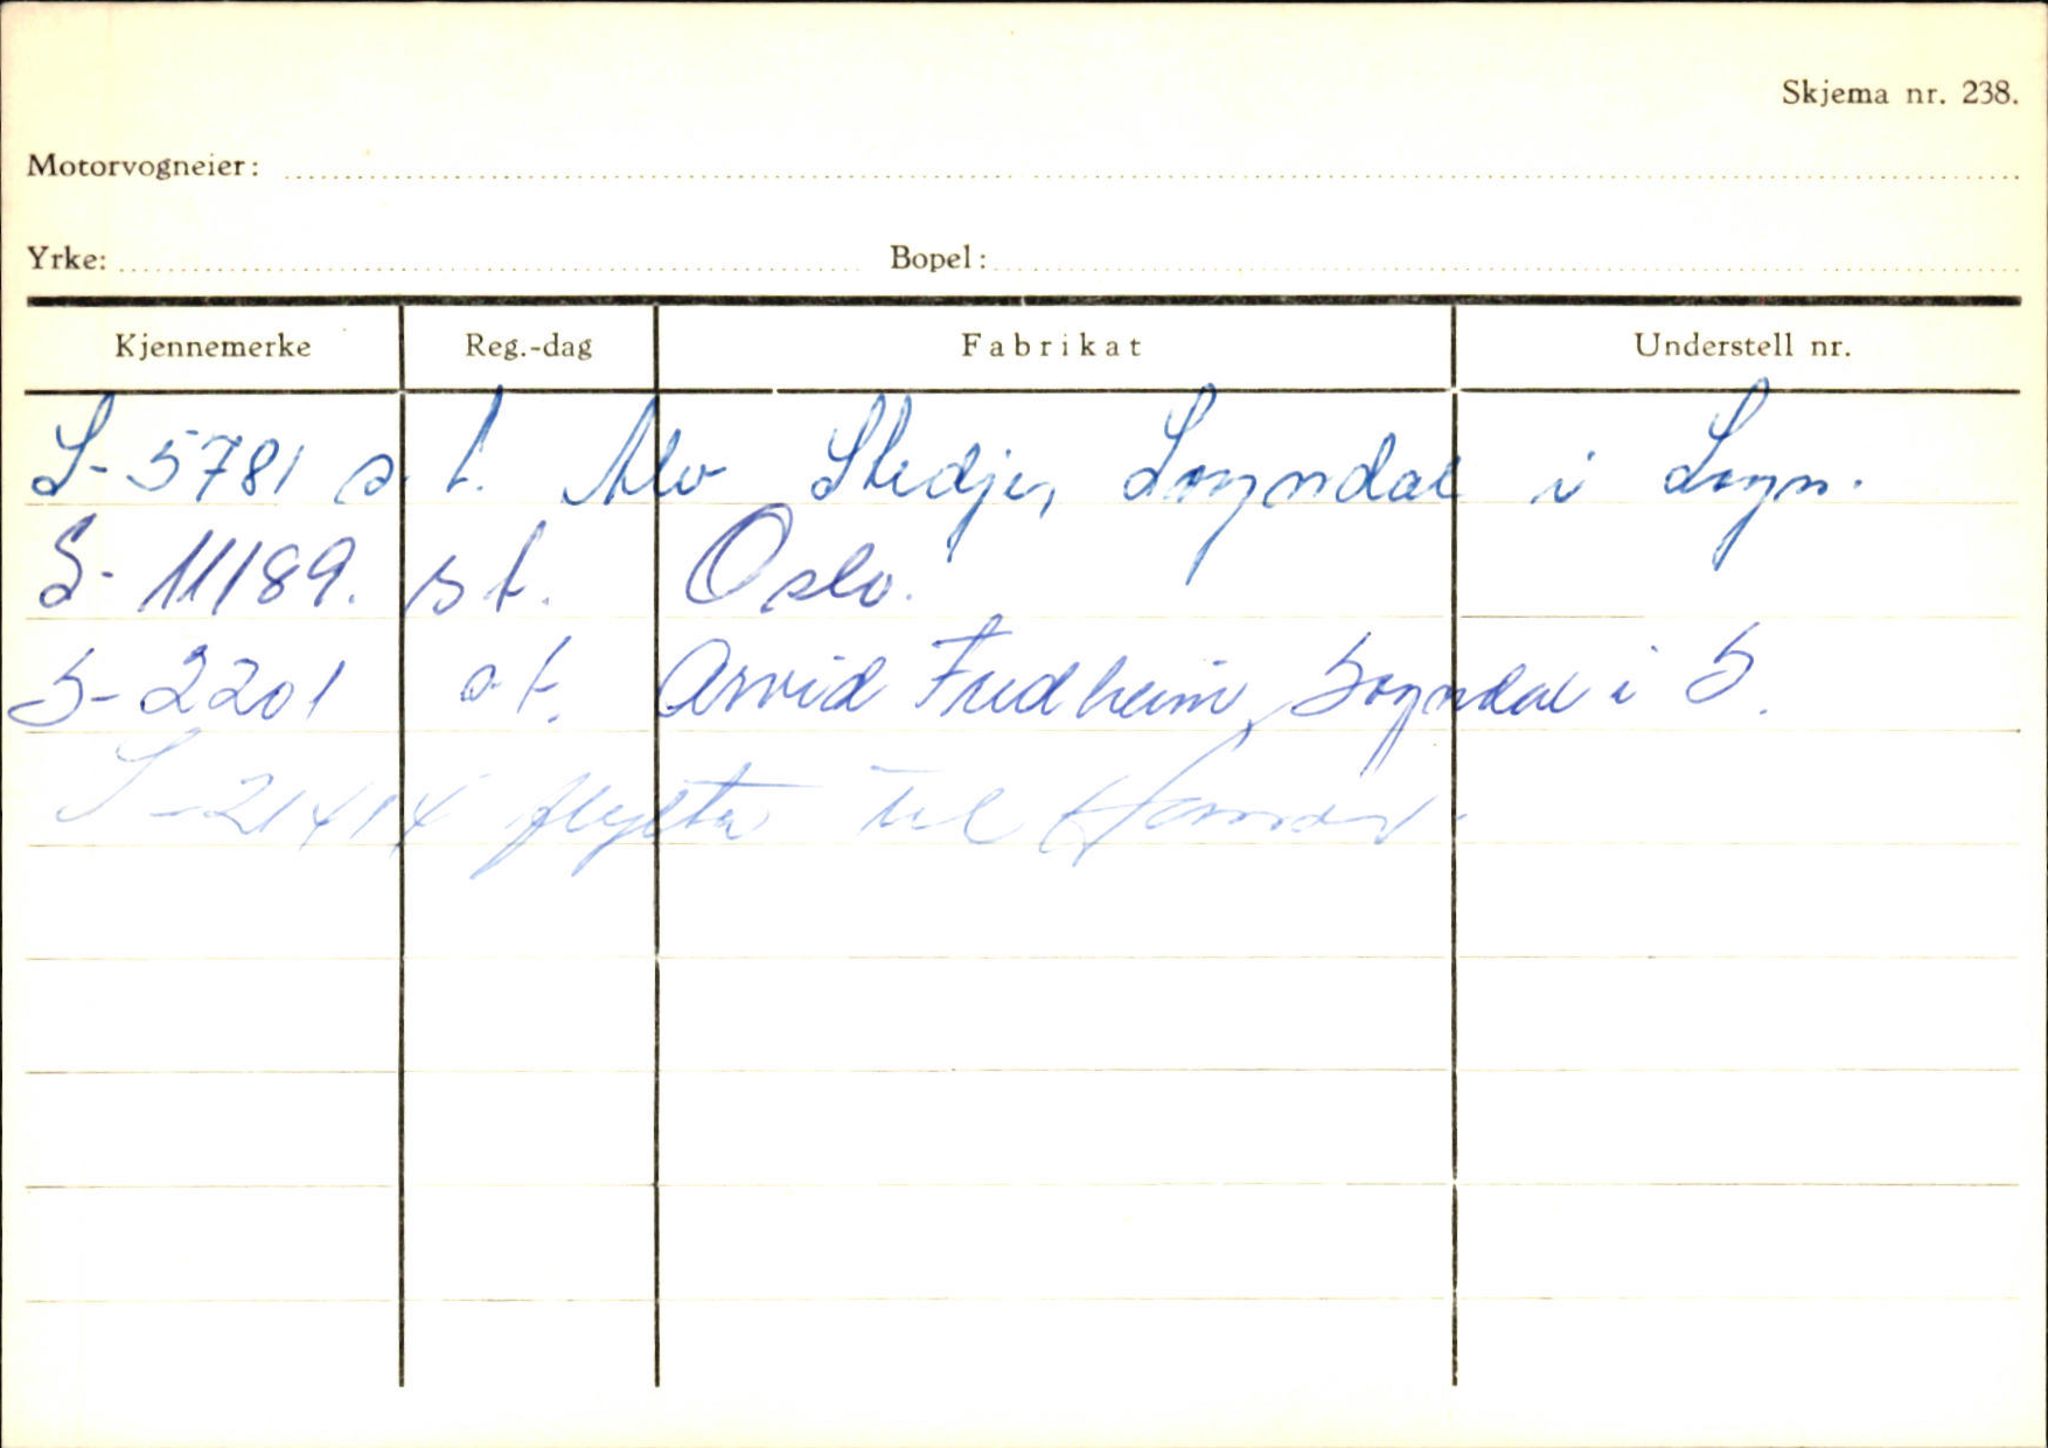 Skjema nr. 238.
Motorvogneier:
Yrke: Bopel:
Kjennemerke Reg.-dag Fabrikat Understell nr.
S-5781 s.t. Alv Stedje, Sogndal i Sogn.
S-11189. s t. Oslo.
S-2201 s.t. Arvid Fredheim, Sogndal i S.
S-21414 flytta til Hamar.